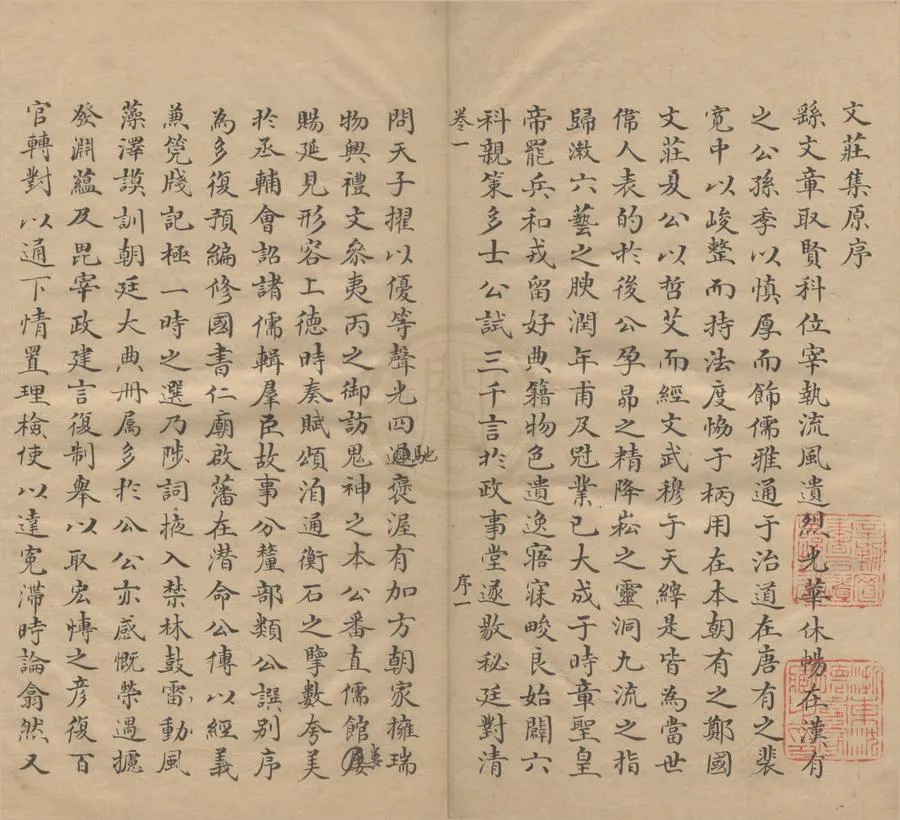 文莊集原序
繇文章取賢科位宰執流風遺烈光華休暢在漢有
之公孫季以慎厚而飾儒雅通于治道在唐有之裴
寬中以峻整而持法度恊于柄用在本朝有之鄭國
文莊夏公以哲艾而經文武穆于天縡是皆為當世
偉人表的於後公孕昴之精降崧之靈洞九流之指
歸漱六藝之腴潤年甫及冠業已大成于時章聖皇
帝罷兵和戎留好典籍物色遺逸寤寐畯良始闢六
科親策多士公試三千言於政事堂遂敭秘廷對清
卷一
序一
問天子擢以優等聲光四馳褒渥有加方朝家擁瑞
物興禮文叅夷丙之御訪鬼神之本公番直儒館屢
賜延見形容上徳時奏賦頌洎通衡石之擥數夸美
於丞輔會詔諸儒輯羣臣故事分釐部類公譔别序
為多復預編修國書仁廟啟藩在潜命公傅以經義
兼筦牋記極一時之選乃陟詞掖入禁林鼓雷動風
藻澤謨訓朝廷大典册属多於公公亦感慨榮遇攄
發淵藴及毘宰政建言復制舉以取宏愽之彦復百
官轉對以通下情置理檢使以達寃滯時論翕然又